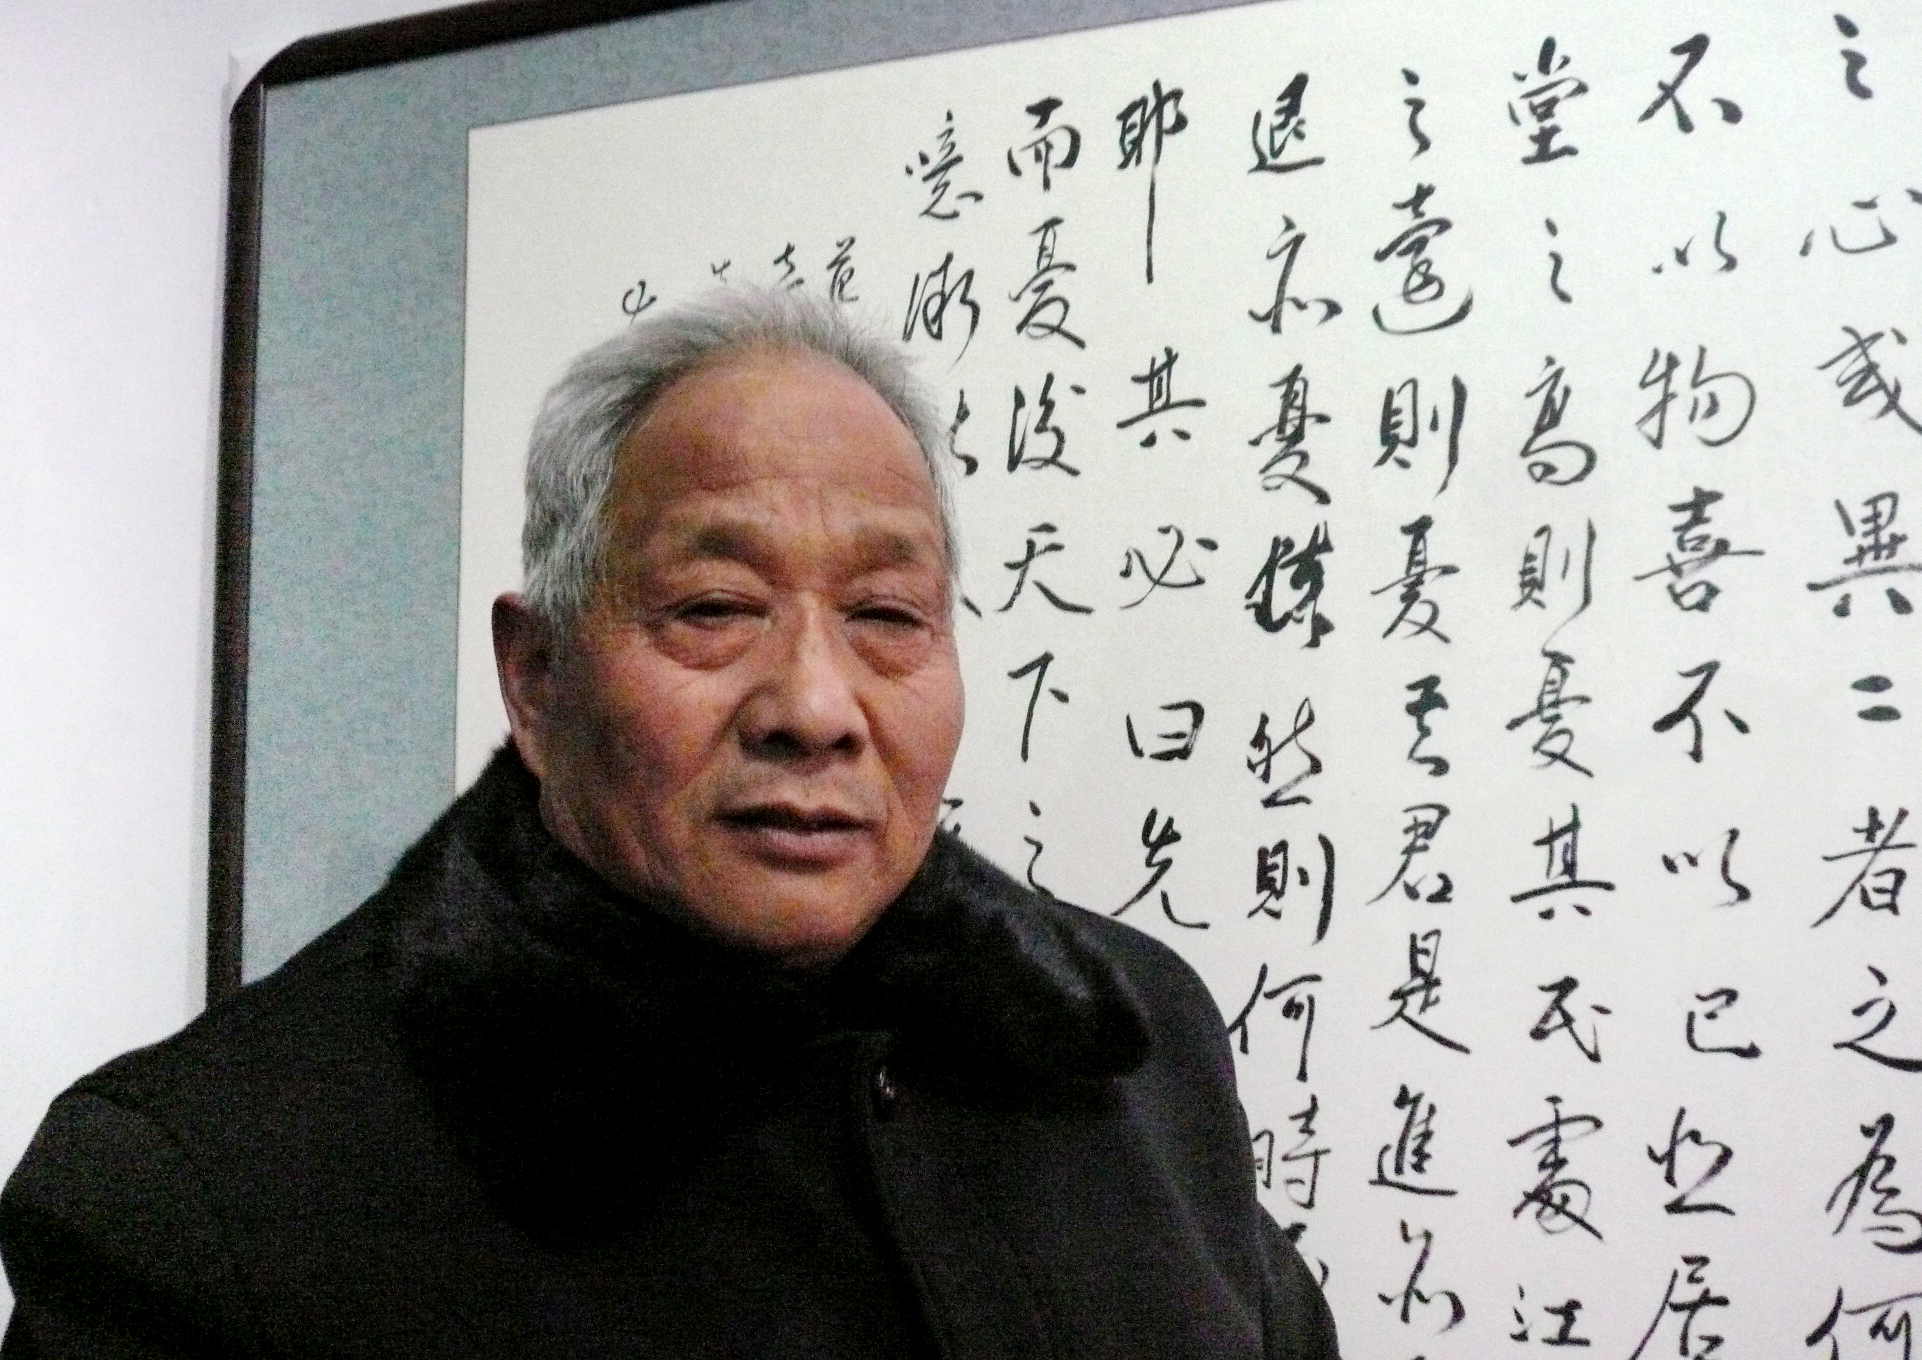 之心或異二者之為何
不以物喜不以己悲居
堂之高則憂其民處江
之遠則憂其君是進亦
退亦憂樂然則何時而
耶其必曰先
而憂後天下之
噫微
范